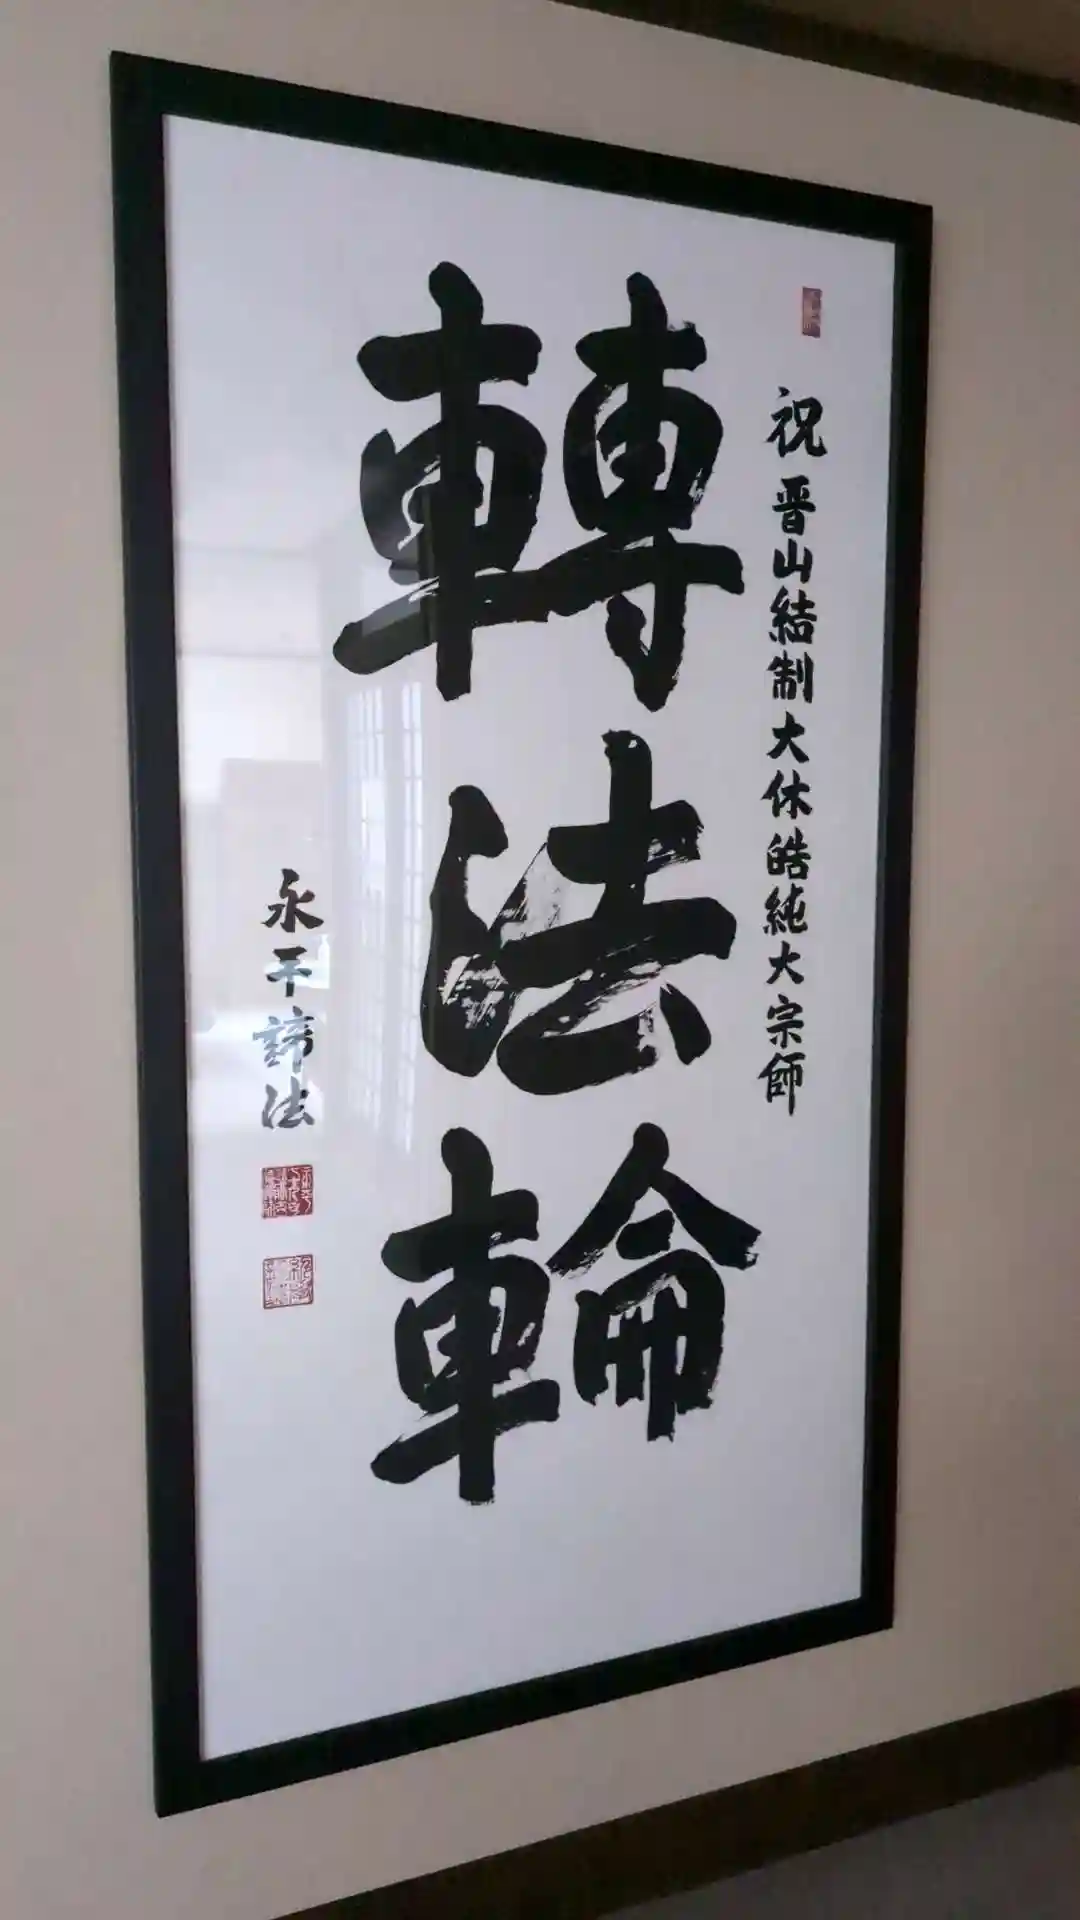 祝 晋山結制大休皓純大宗師
轉法輪
永平諦法